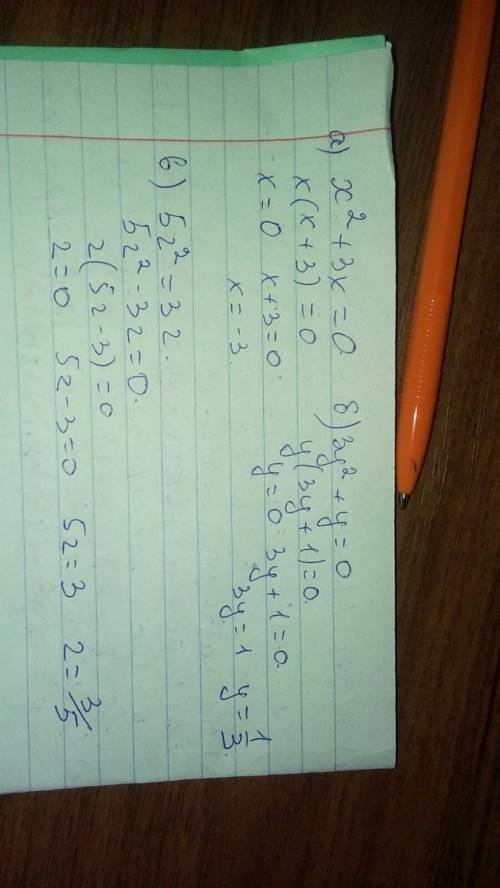 а) x² + 3x = 0
x(x + 3) = 0
x = 0 x + 3 = 0
x = -3
б) 3y² + y = 0
y(3y + 1) = 0.
y = 0 3y + 1 = 0
3y = 1 y = 1/3
в) 5z² = 3z.
5z² - 3z = 0.
z(5z - 3) = 0
z = 0 5z - 3 = 0 5z = 3 z = 3/5